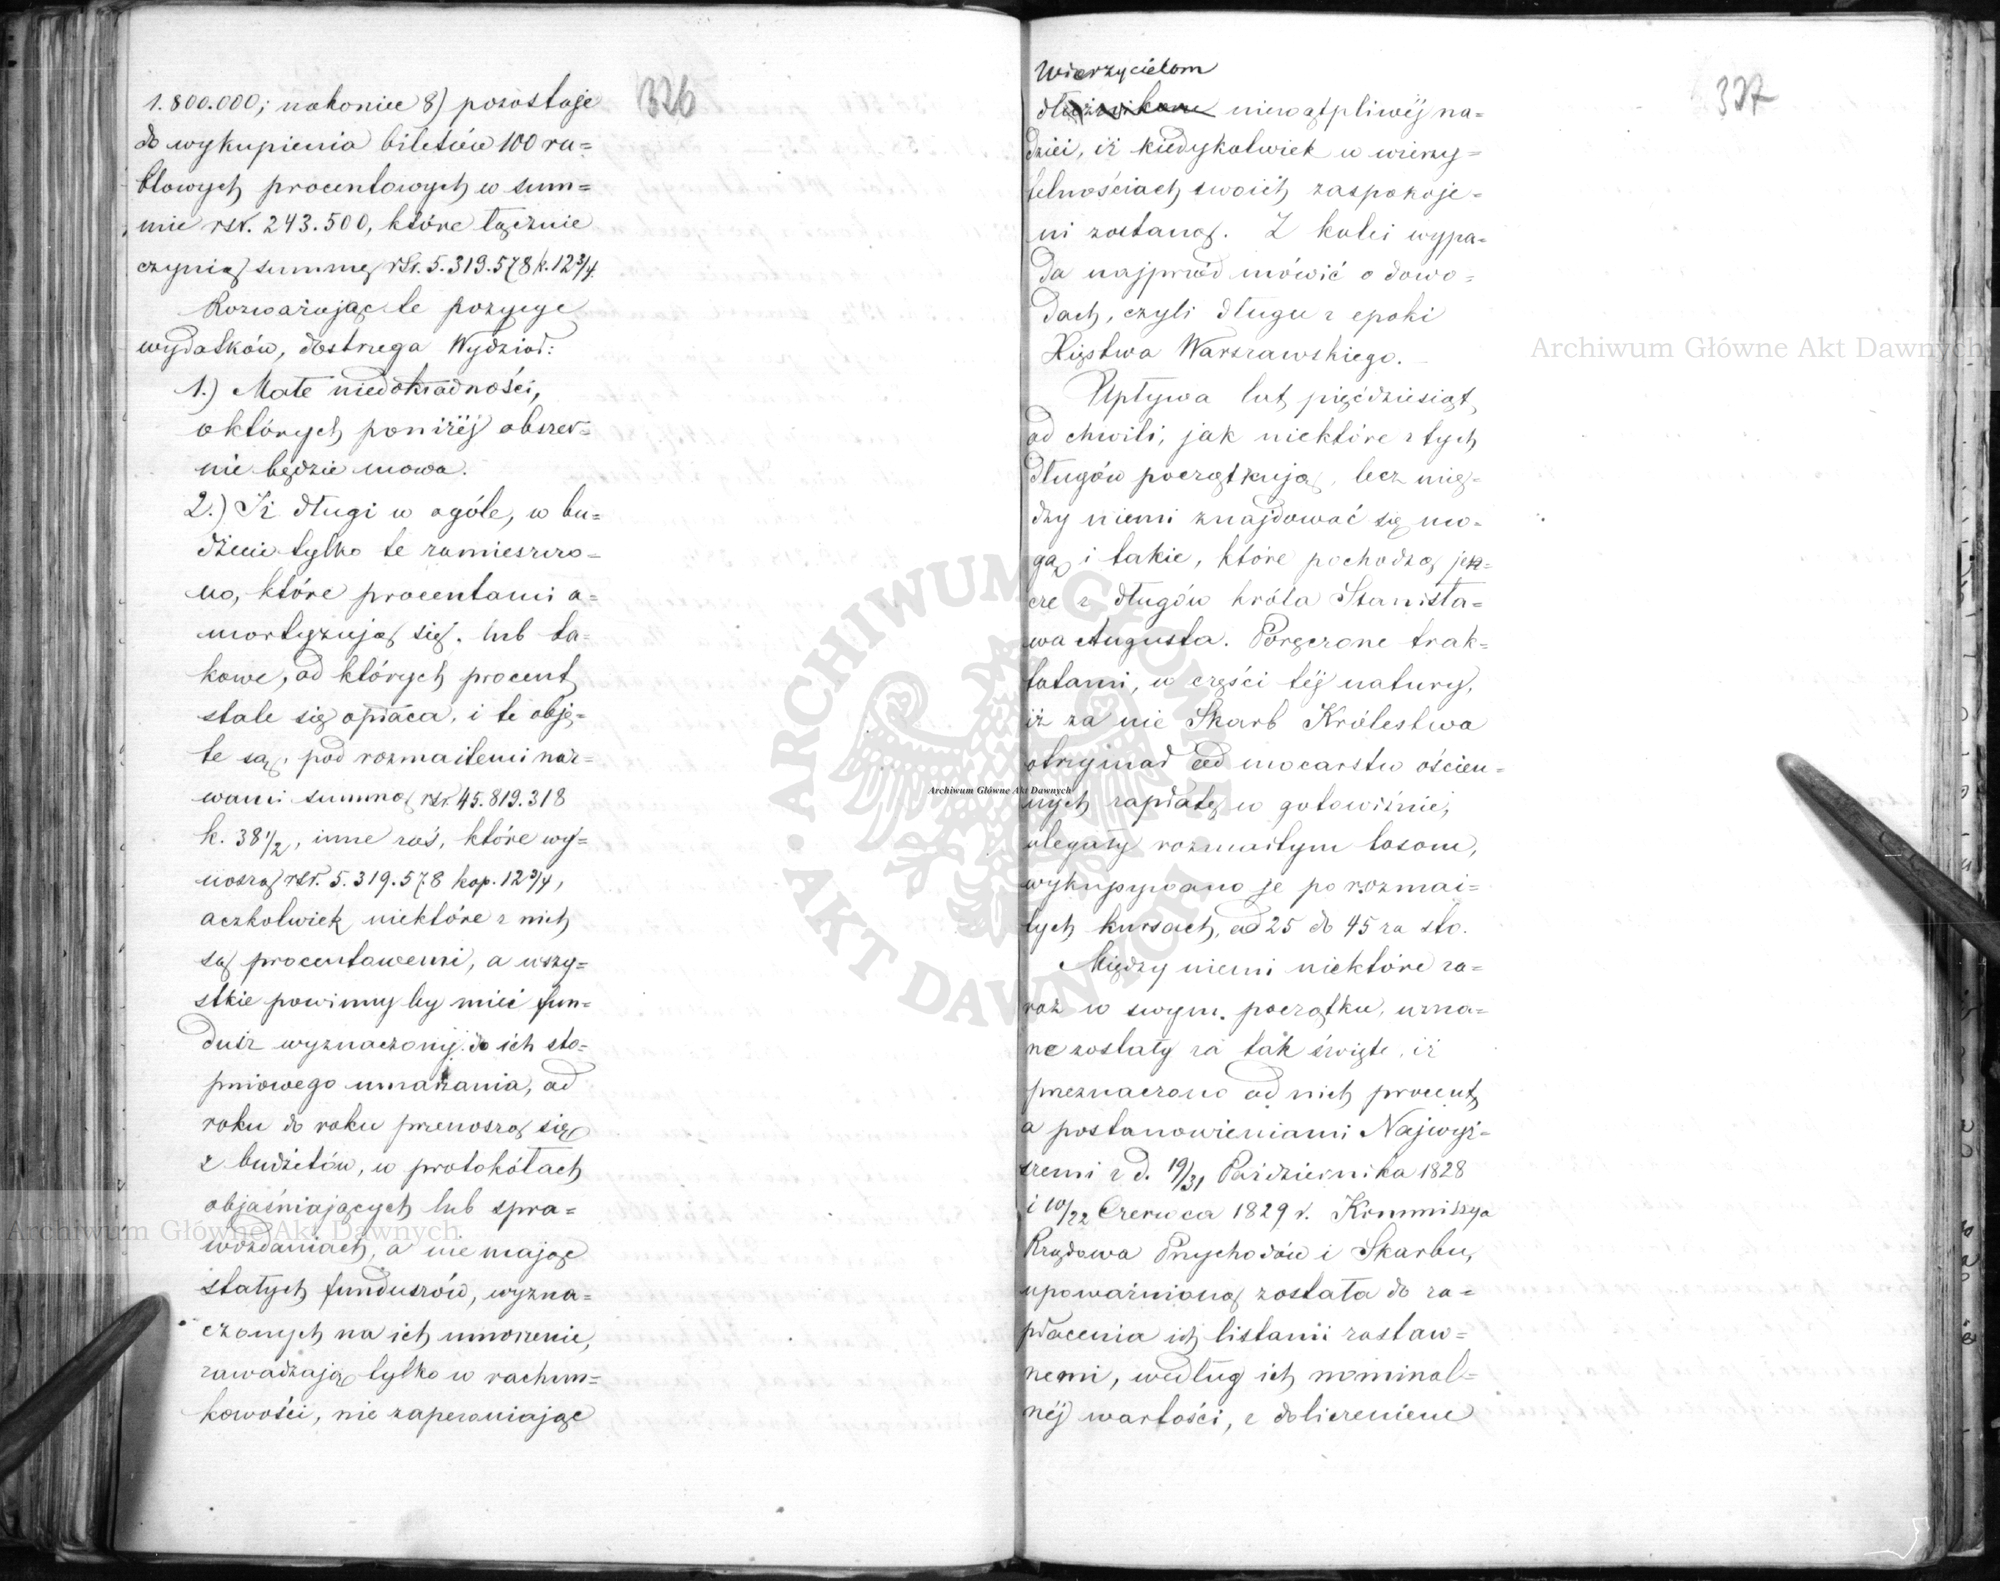 326
1.800.000; nakoniec 8) pozostaje
do wykupienia biletów 100 ru=
blowych procentowych w sum=
mie rsr. 243.500, które łącznie
czynią summę rsr. 5.319.578 k. 12 3/4.
Rozważając te pozycye
wydatków, dostrzega Wydział:
1.) Małe niedokładności,
o których poniżéj obszer=
nie będzie mowa.
2.) Iż długi w ogóle, w bu=
dżecie tylko te zamieszczo=
no, które procentami a=
mortyzują się, lub ta=
kowe, od których procent
stale się opłaca, i te obję=
te są, pod rozmaitemi naz=
wami summą rsr. 45.819.318
k. 38 1/2, inne zaś, które wy=
noszą rsr. 5.319.578 kop. 12 3/4,
aczkolwiek niektóre z nich
są procentowemi, a wszy=
stkie powinny by mieć fun=
dusz wyznaczony do ich sto=
pniowego umarzania, od
roku do roku przenoszą się
z budżetów, w protokółach
objaśniających lub spra=
wozdaniach, a nie mając
stałych funduszów, wyzna=
czonych na ich umorzenie,
zawadzają tylko w rachun=
kowości, nie zapewniając
337
Wierzycielom
niewątpliwéj na=
dziei, iż kiedykolwiek w wierzy=
telnościach swoich zaspokoje=
ni zostaną. Z kolei wypa=
da najprzód mówić o dowo=
dach, czyli długu z epoki
Xięstwa Warszawskiego.
Upływa lat pięćdziesiąt
od chwili, jak niektóre z tych
długów początkują, lecz mię=
dzy niemi znajdować się mo=
gą i takie, które pochodzą jesz=
cze z długów króla Stanisła=
wa Augusta. Poręczone trak=
tatami, w części téj natury,
iż za nie Skarb Królestwa
otrzymał od mocarstw ościen=
nych zapłatę w gotowiźnie,
ulegały rozmaitym losom,
wykupywano je po rozmai=
tych kursach, od 25 do 45 za sto.
Między niemi niektóre za=
raz w swym początku, uzna=
ne zostały za tak święte, iż
przeznaczono od nich procent,
a postanowieniami Najwyż=
szemi z d. 19/31 Października 1828
i 10/22 Czerwca 1829 r. Kommissya
Rządowa Przychodów i Skarbu,
upoważnioną została do za=
płacenia ich listami zastaw=
nemi, według ich nominal=
néj wartości, z doliczeniem
Archiwum Główne Akt Dawnych
Archiwum Główne Akt Dawnych
Archiwum Główne Akt Dawnych
ARCHIWUM GŁÓWNE AKT DAWNYCH